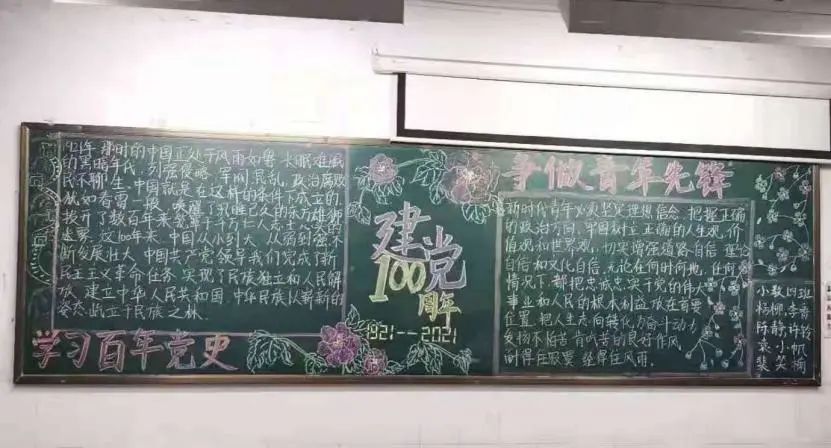 1921年 那时的中国正处于风雨如磐 长眠难觉
的黑暗年代，列强侵略，军阀混乱，政治腐败
民不聊生，中国就是在这样的条件下成立的
犹如春雷一般，唤醒了沉睡已久的东方雄狮
拨开了数百年来
迷雾。这100年来，中国从小到大，从弱到强不
断发展壮大 中国共产党领导我们完成了新
民主主义革命任务 实现了民族独立和人民解
放，建立中华人民共和国，中华民族以崭新的
姿态屹立于民族之林。
学习百年党史
建党
100
周年
1921--2021
争做青年先锋
新时代青年必须坚定理想信念，把握正确
的政治方向，牢固树立正确的人生观,价
值观和世界观，切实增强道路自信 理论
自信和文化自信，无论在何时何地，任何
情况下，都把忠诚忠实于党的伟大
事业和人民的根本利益放在首要
位置，把人生志向转化为奋斗动力
发扬不怕苦 有吃苦的良好作风
耐得住寂寞 经得住风雨。
小教四班
杨柳 李春
陈静 许铃
袁小帆
裴笑梅